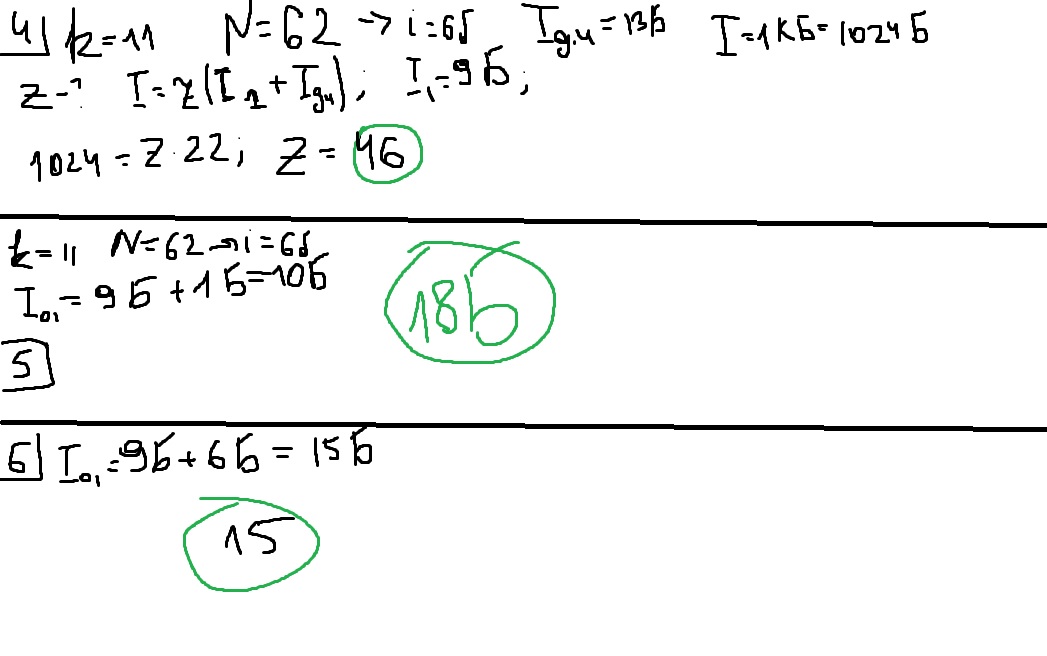 4) k=11 N=62 → i=6б Iд.ч=13Б I=1КБ=1024Б
Z-? I=Z(I1+Iдч); I1=9Б;
1024=Z·22; Z=46
k=11 N=62→i=6б
Iо1=9Б+1Б=10Б
18Б
5
6) Iо1=9Б+6Б=15Б
15